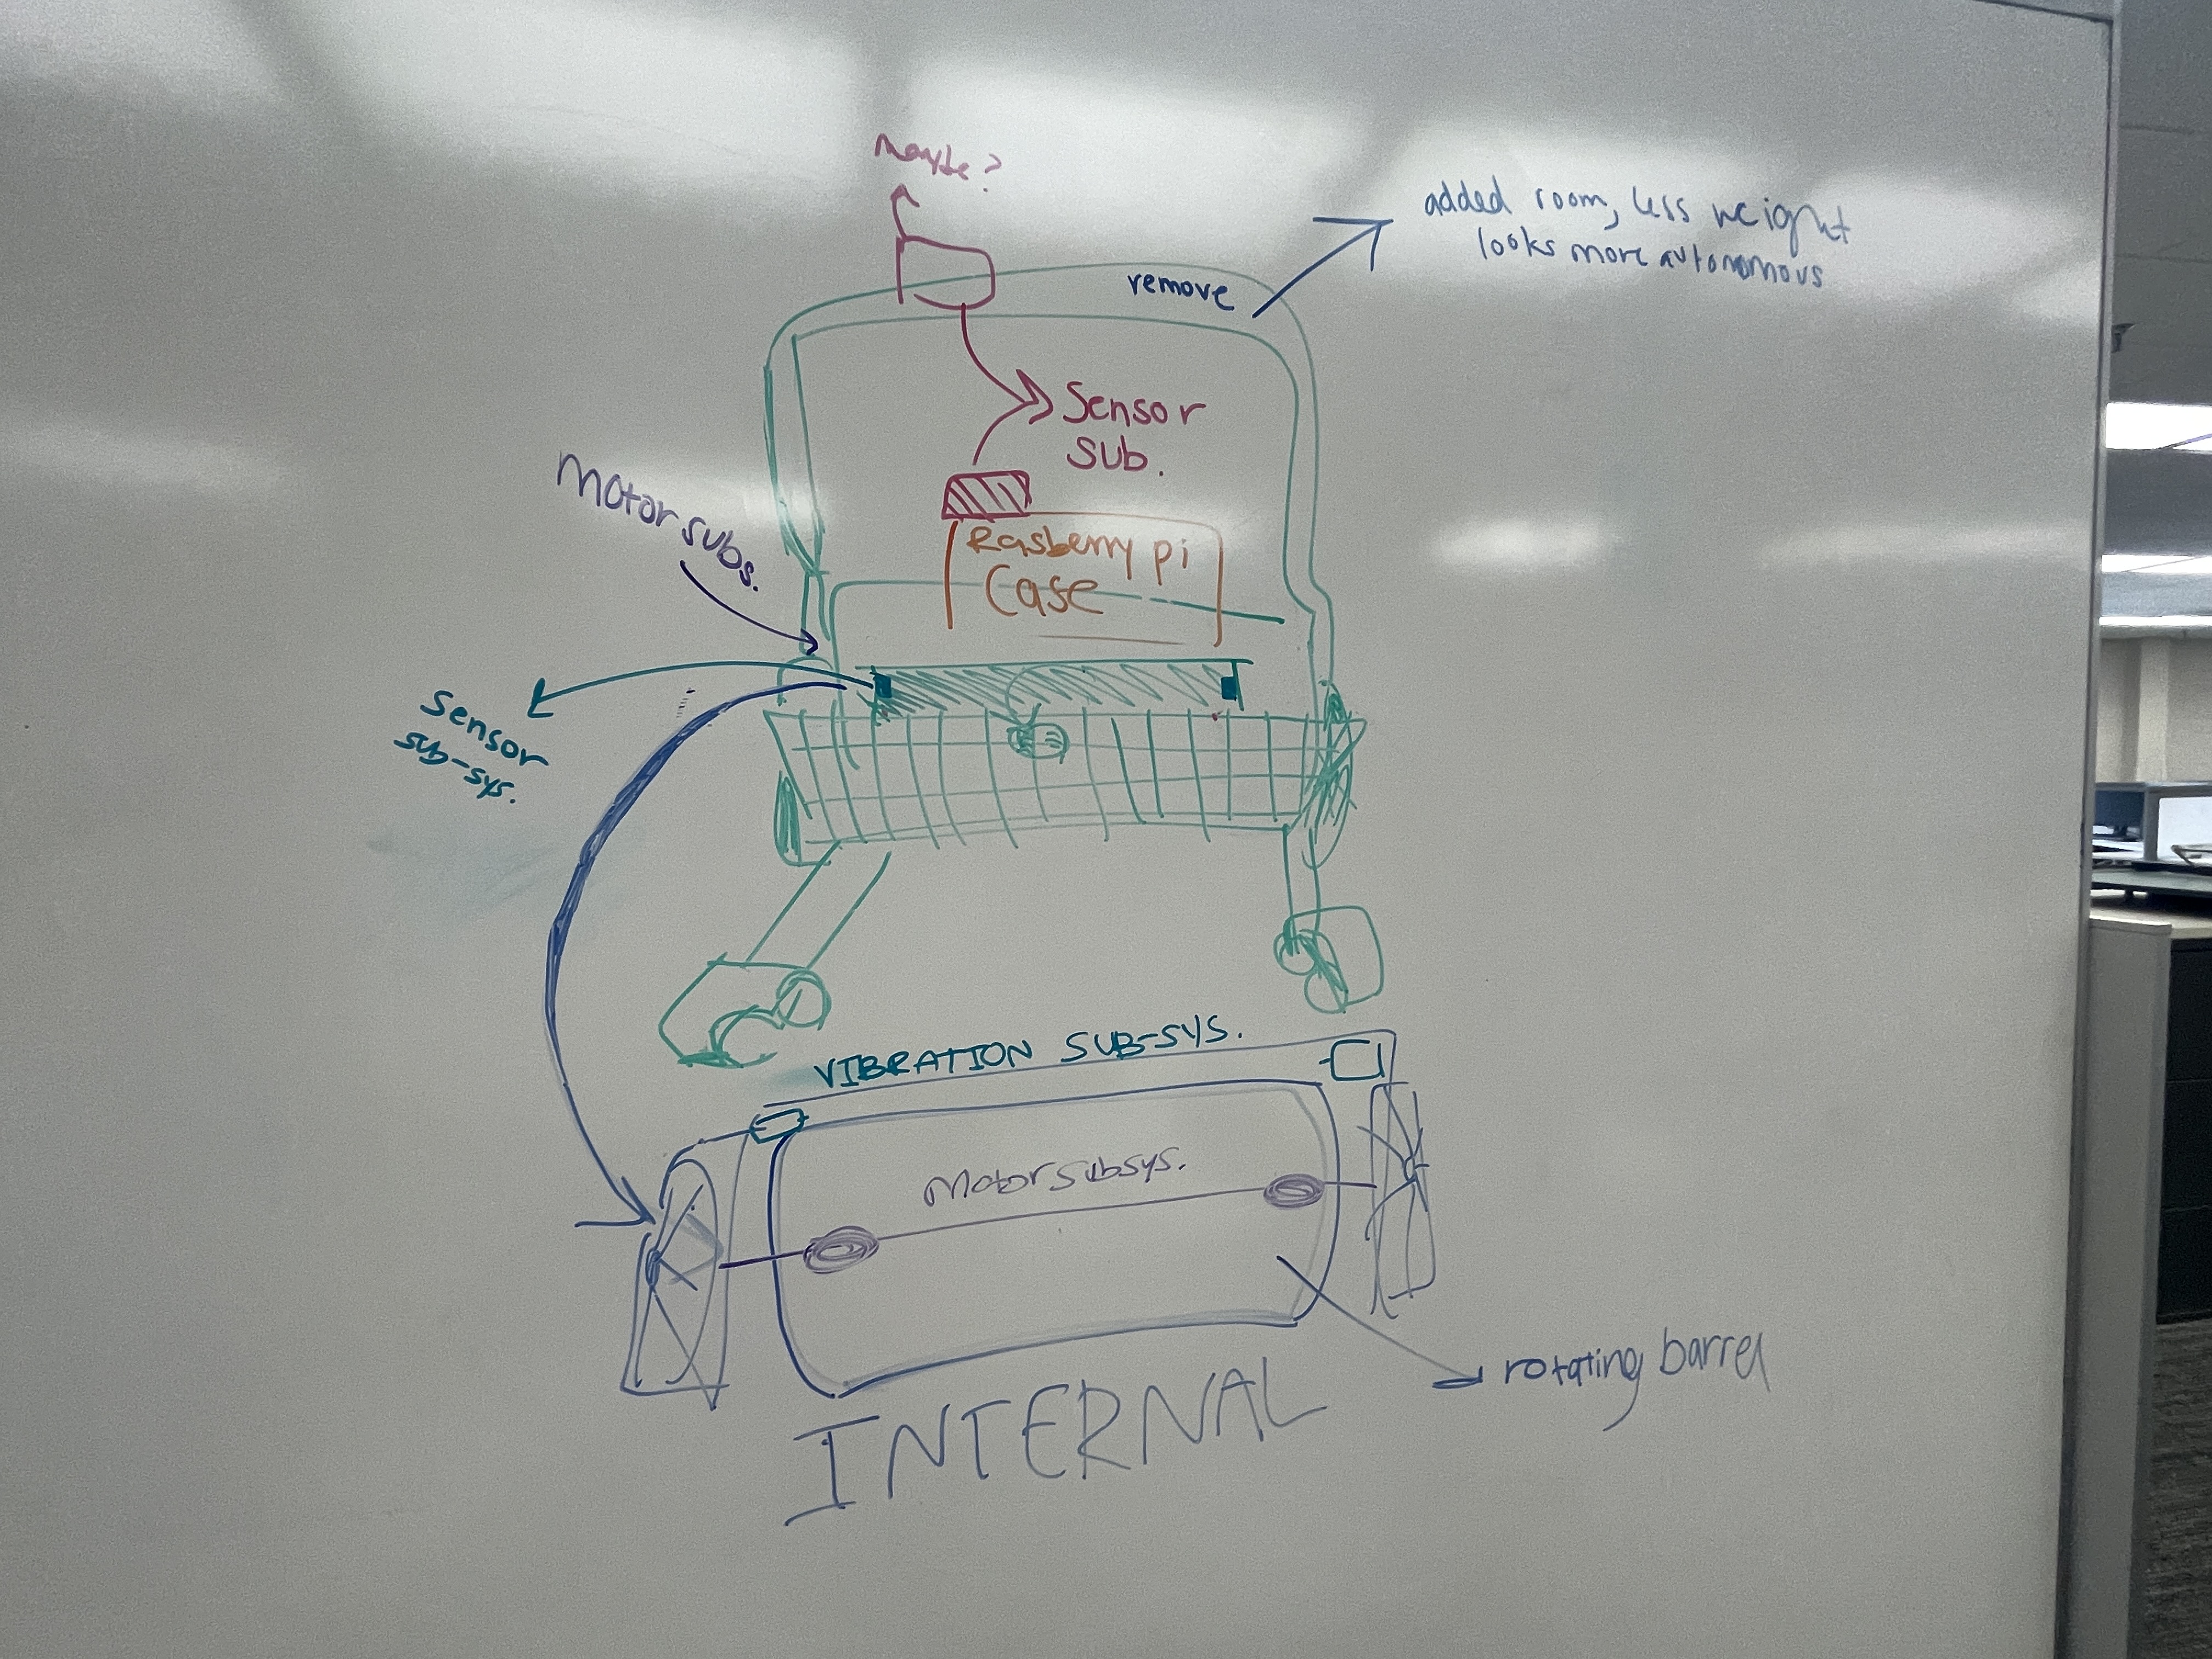 maybe?
added room, less weight
looks more autonomous
remove
Sensor
sub.
Motor subs.
Rasberry pi
Case
Sensor
sub-sys.
VIBRATION SUB-SYS.
Motor subsys.
rotating barrel
INTERNAL